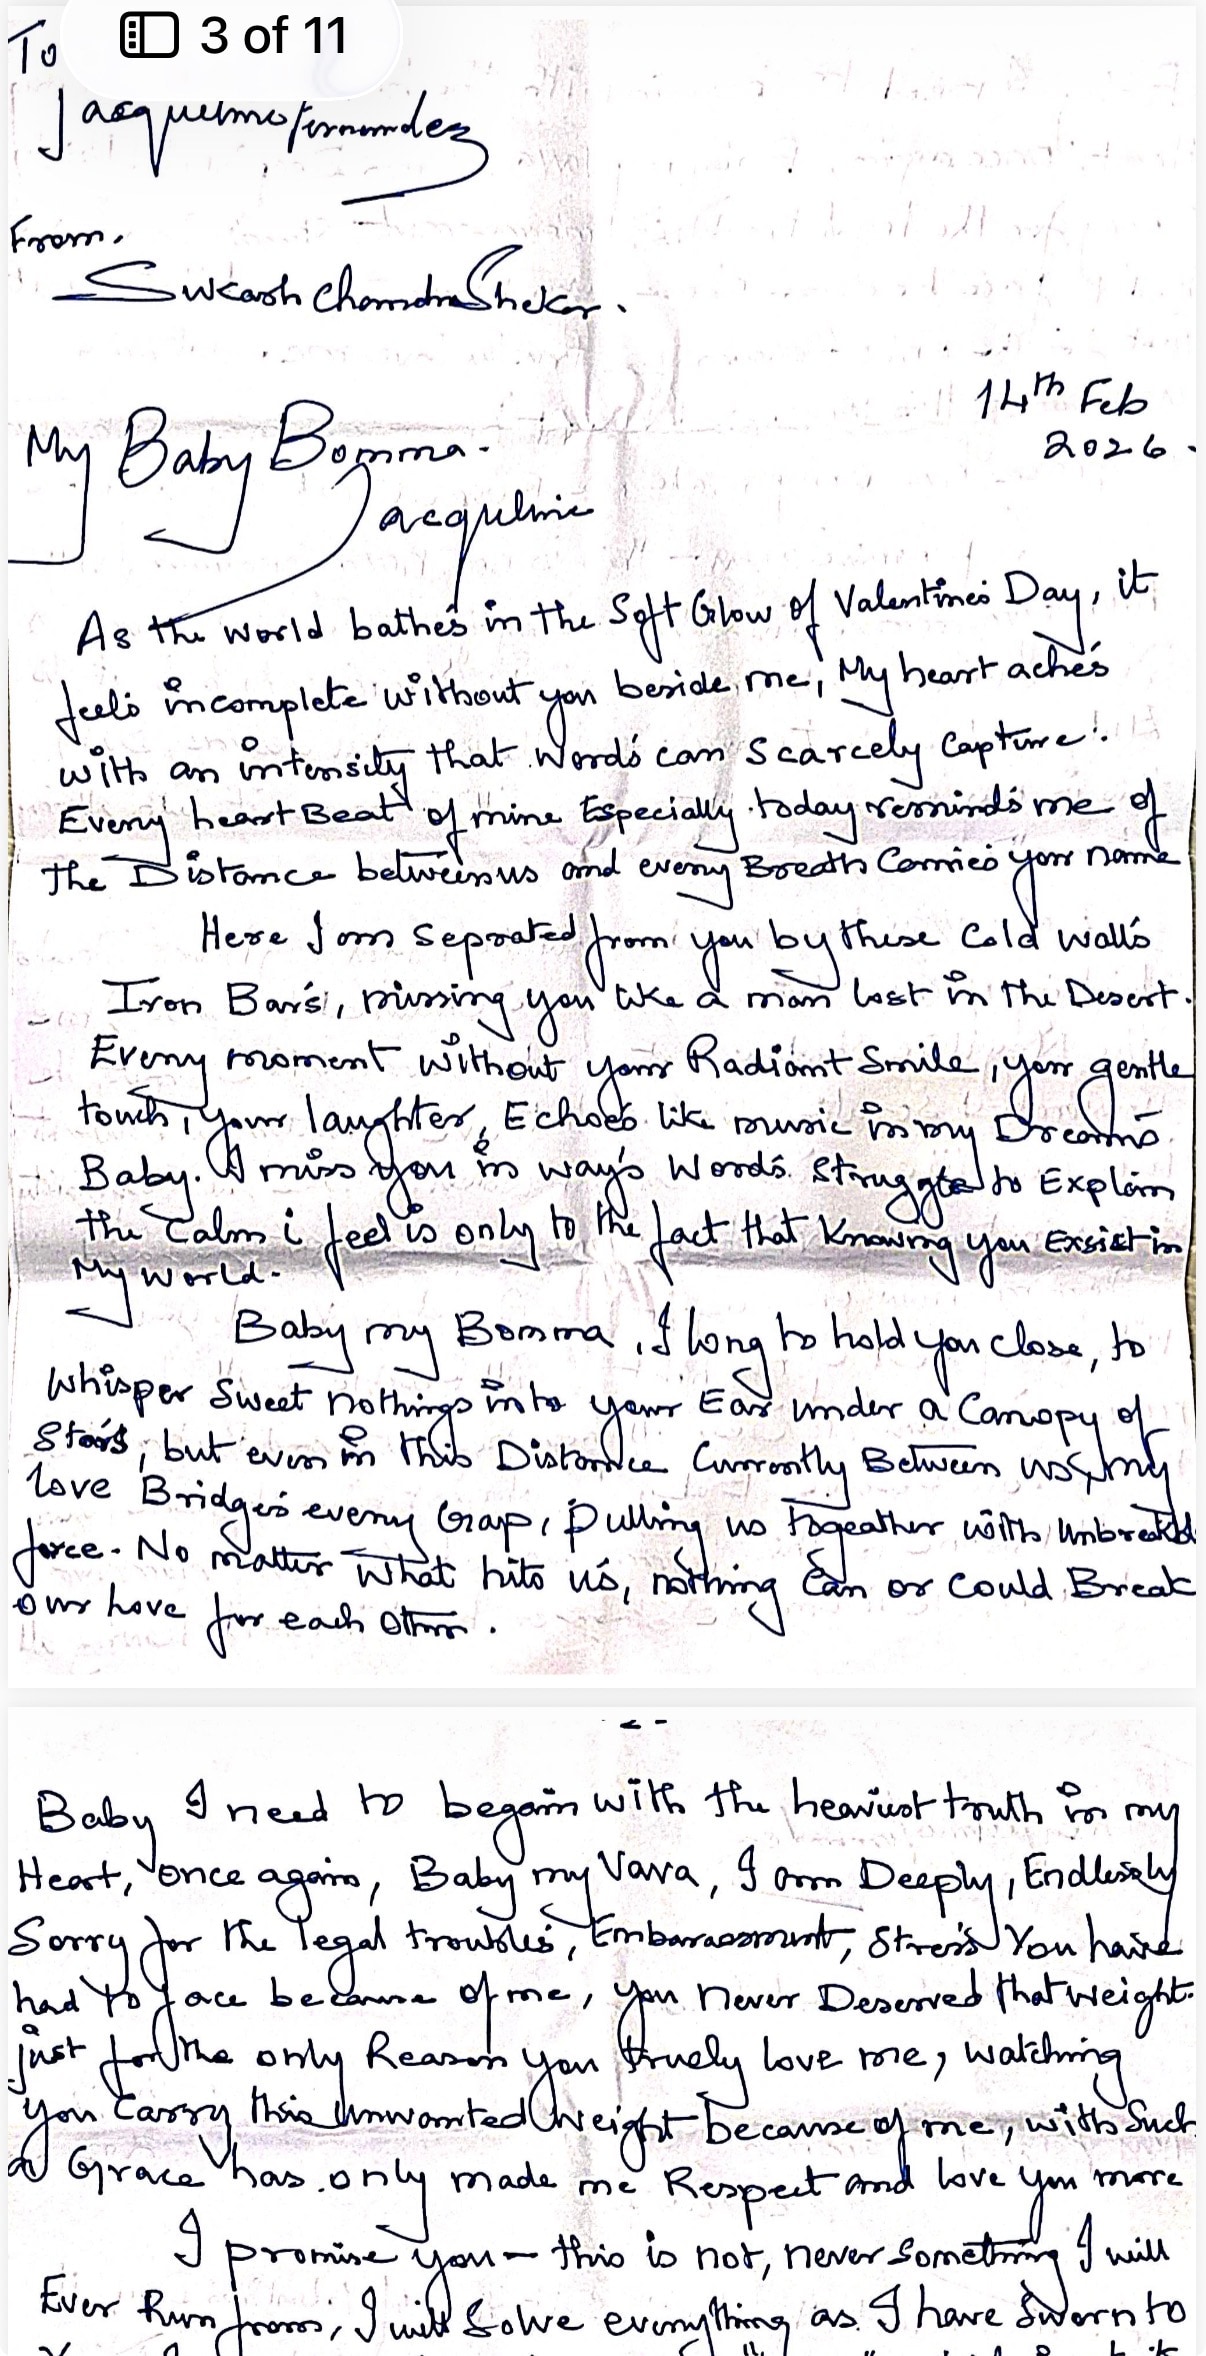 3 of 11
To
Jacqueline Fernandez
From,
Sukash ChandraShekar.
14th Feb
2026.
My Baby Bomma.
Jacqueline
As the World bathe's in the Soft Glow of Valentine's Day, it
feel's incomplete without you beside me, My heart ache's
with an intensity that Word's can Scarcely Capture.
Every heart Beat of mine Especially today remind's me of
the Distance between us and every Breath Carries your name
Here I am Seprated from you by these Cold wall's
Iron Bar's, missing you like a man lost in the Desert.
Every moment without your Radiant Smile, your gentle
touch, your laughter, Echoe's like music in my Dream's
Baby. I miss you in way's Word's Struggle to Explain
the Calm i feel is only to the fact that Knowing you Exsist in
My World.
Baby my Bomma, I long to hold you close, to
Whisper Sweet nothings into your Ear under a Canopy of
Star's, but even in this Distance Currently Between us, my
love Bridge's every Gap, Pulling us togeather with
force. No matter What hits us, nothing Can or Could Break
our Love for each other.
2 -
Baby I need to begain with the heaviest truth in my
Heart, once again, Baby my Vava, I am Deeply, Endlessly
Sorry for the legal trouble's, Embarassment, Stress You have
had to face because of me, you never Deserved that Weight.
just for the only Reason you truely love me, Watching
you Carry this Unwanted Weight because of me, with Such
a Grace has only made me Respect and love you more
I promise you – this is not, never Something I will
Ever Run from, I will Solve everything as I have Sworn to